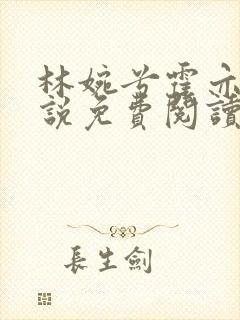 林婉兮霍亦
說免費閱讀
長生劍